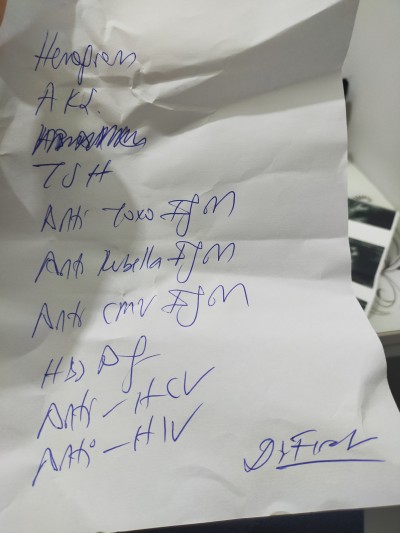 Hemogram
AKŞ.
TSH
Anti Toxo IgM
Anti Rubella IgM
Anti CMV IgM
HBs Ag
Anti-HCV
Anti-HIV